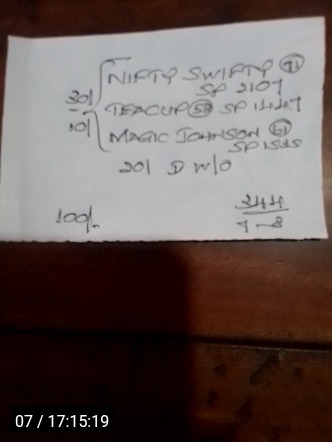 NIFTY SWIFTY (71)
SP 2107
30/
TEACUP (58) SP 1447
10/
MAGIC JOHNSON (61)
SP 1535
20/ D W/O
100/.
344
7-8
07 / 17:15:19